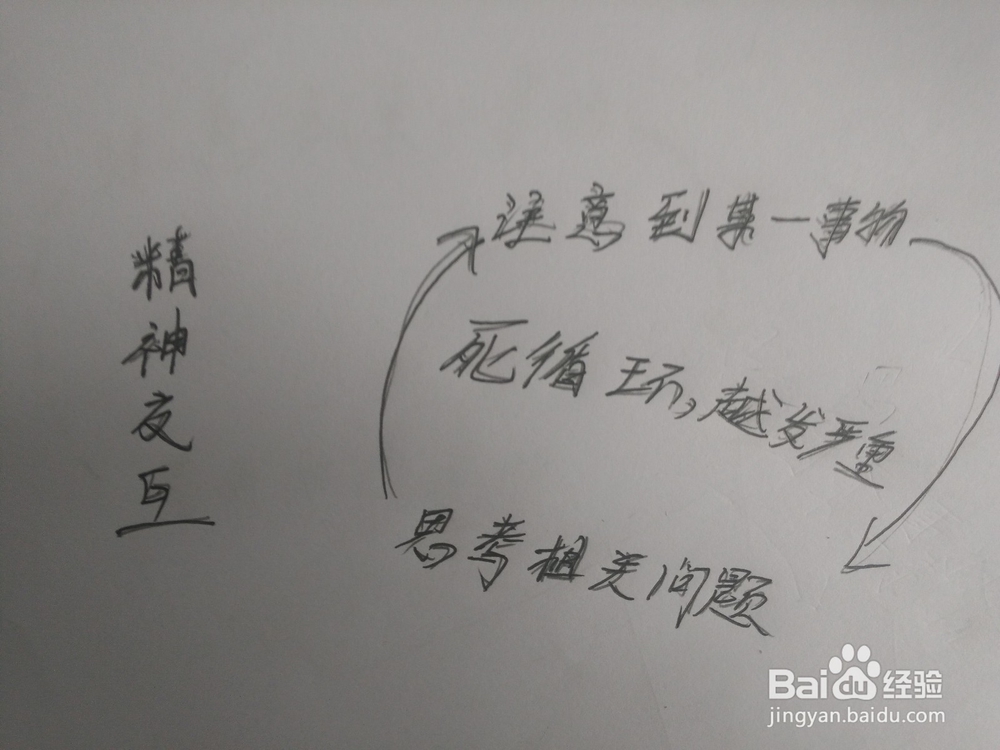 精神交互
注意到某一事物
死循环,越发严重
思考相关问题
Baidu 经验
jingyan.baidu.com